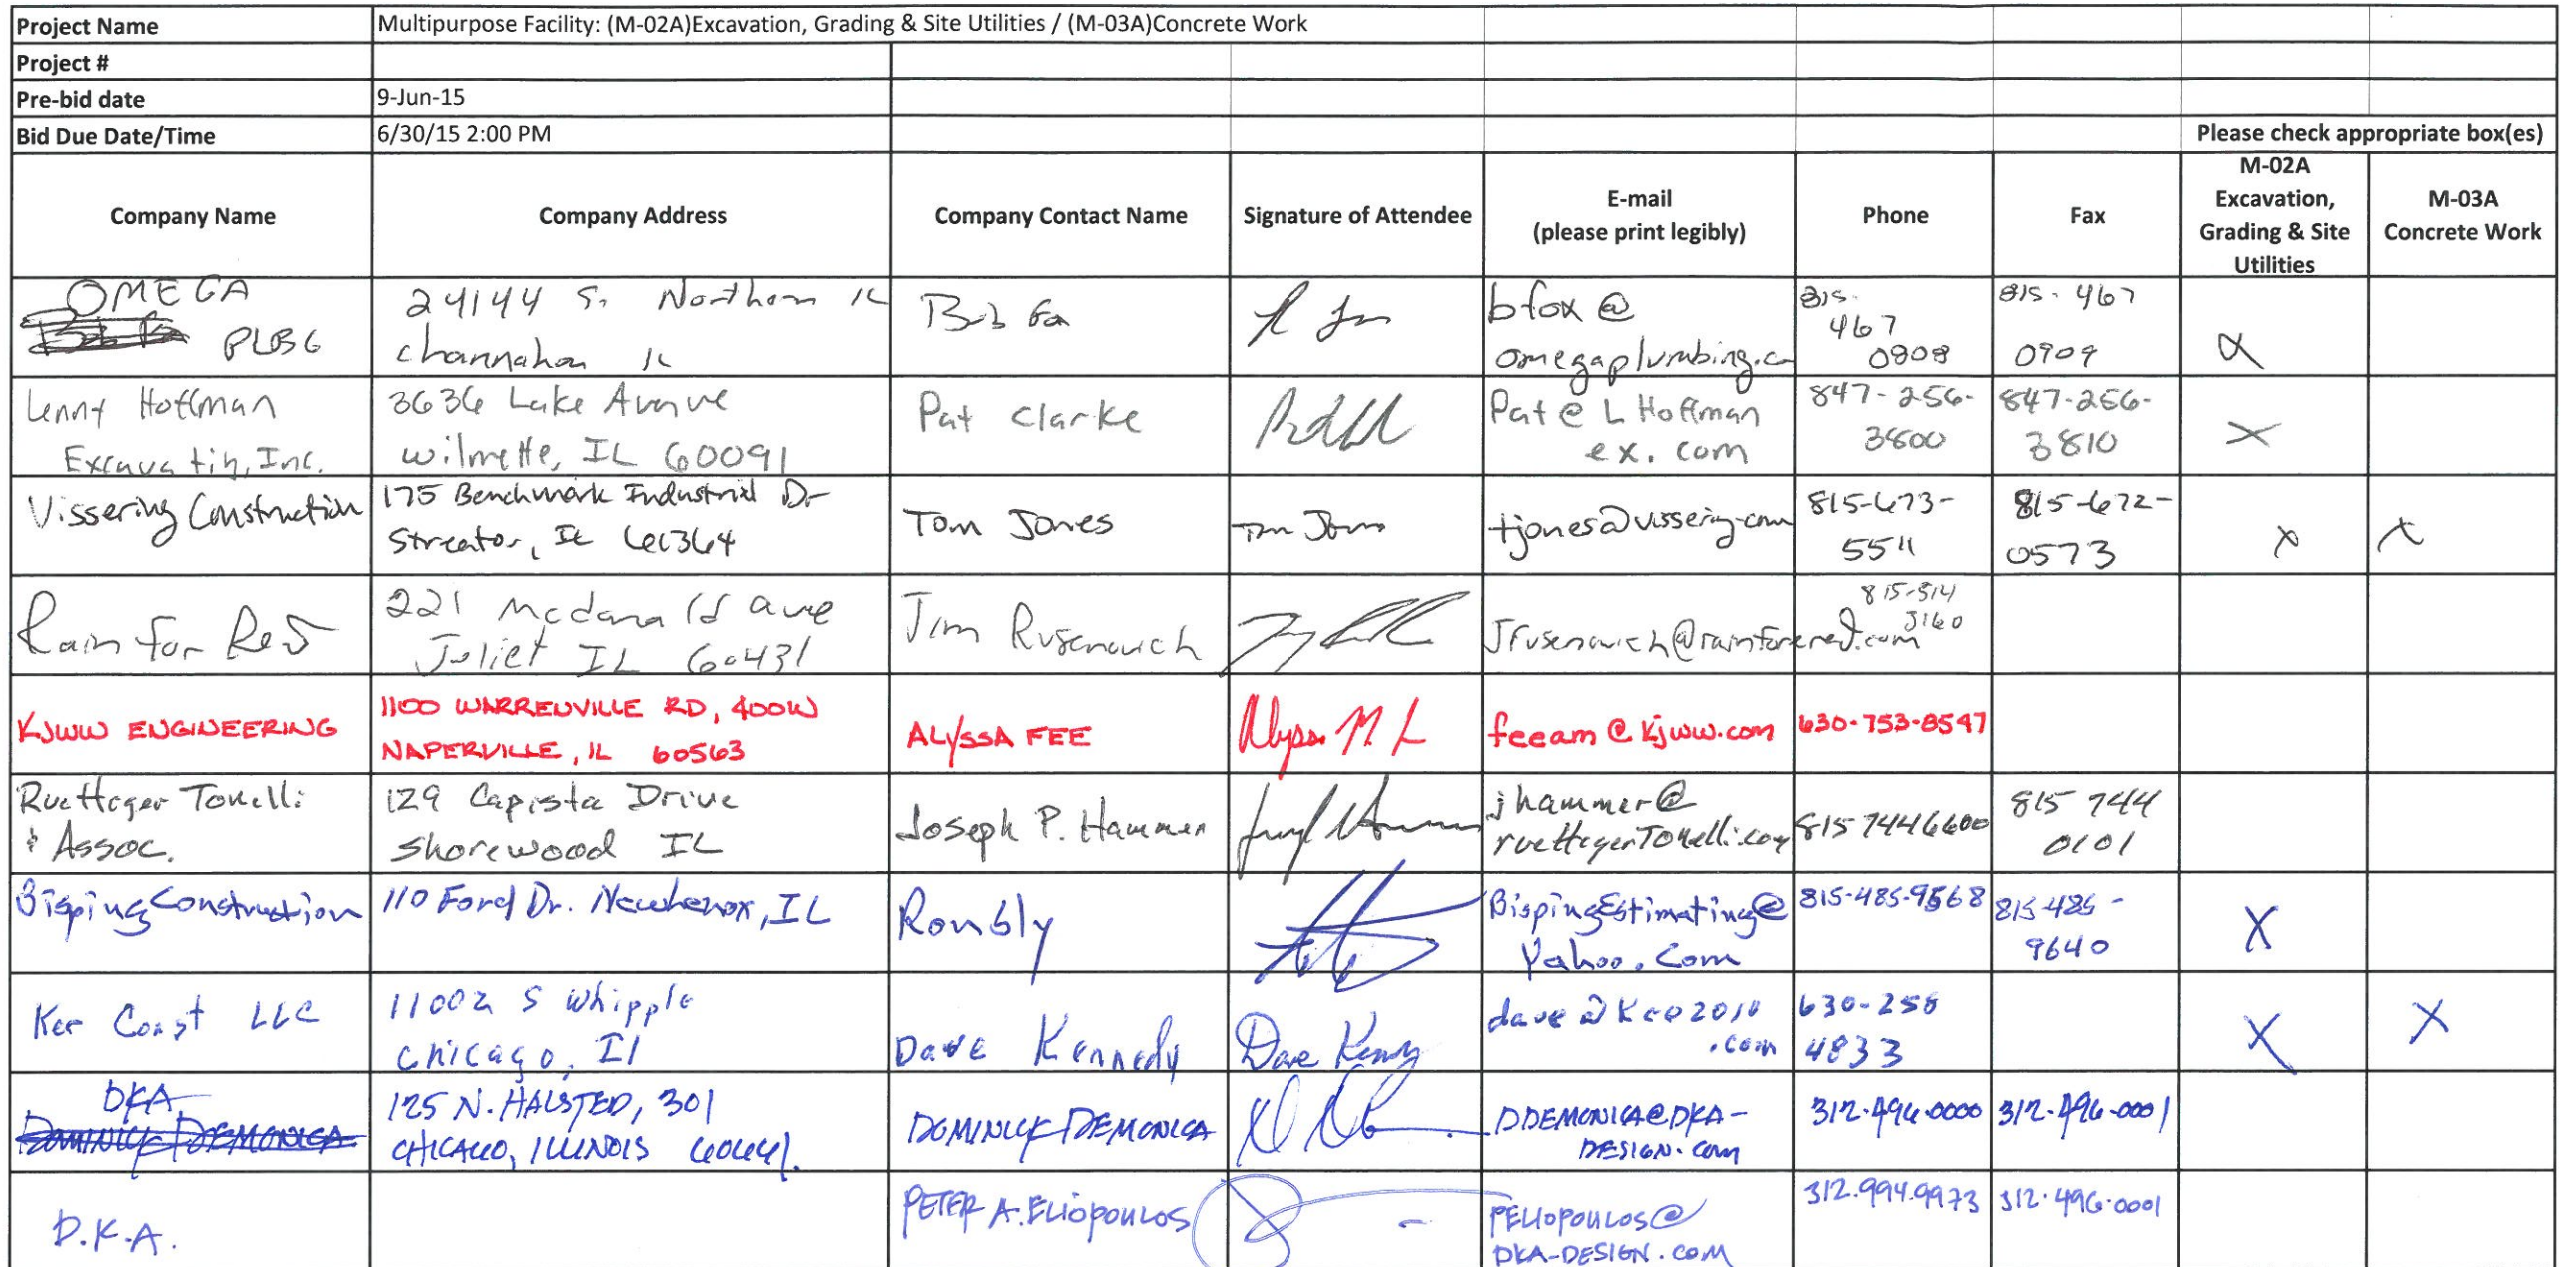 Project Name Multipurpose Facility: (M-02A)Excavation, Grading & Site Utilities / (M-03A)Concrete Work
Project #
Pre-bid date 9-Jun-15
Bid Due Date/Time 6/30/15 2:00 PM Please check appropriate box(es)
Company Name
Company Address
Company Contact Name
Signature of Attendee
E-mail
(please print legibly)
Phone
Fax
M-02A
Excavation,
Grading & Site
Utilities
M-03A
Concrete Work
OMEGA
PLBG
24144 S. Northern IL
Channahon IL
Bob Fox
bfox@
omegaplumbing.co
815-
467
0908
815-467
0909
X
Lenny Hoffman
Excavatin, Inc.
3636 Lake Avenue
Wilmette, IL 60091
Pat Clarke
Pat@LHoffman
ex.com
847-256-
3800
847-256-
3810
X
Vissering Construction
175 Benchmark Industrial Dr
Streator, IL 61364
Tom Jones
Tom Jones
tjones@vissering.com
815-673-
5511
815-672-
0573
X X
Rain for Rent
221 Mcdonald ave
Joliet IL 60431
Jim Rusenovich
815-514
KJWW ENGINEERING
1100 WARRENVILLE RD, 400W
NAPERVILLE, IL 60563
ALYSSA FEE
feeam@kjww.com
630-753-8547
Ruettiger Tonelli
& Assoc.
129 Capista Drive
Shorewood IL
Joseph P. Hammer
jhammer@
ruettigerTonelli.com
815 7446600
815 744
0101
Bisping Construction
110 Ford Dr. Newlenox, IL
Ron Bly
BispingEstimating@
Yahoo.Com
815-485-9568
815-485-
9640
X
Kee Const LLC
11002 S Whipple
Chicago, Il
Dave Kennedy
Dave Kenny
dave@Kco2010
.com
630-258
4833
X X
DKA
DOMINICK DEMONICA
125 N. HALSTED, 301
CHICAGO, ILLINOIS 60661.
DOMINICK DEMONICA
DDEMONICA@DKA-
DESIGN.com
312-496-0000
312-496-0001
D.K.A.
PETER A. ELIOPOULOS
PELIOPOULOS@
DKA-DESIGN.COM
312.994.9973
312.496.0001